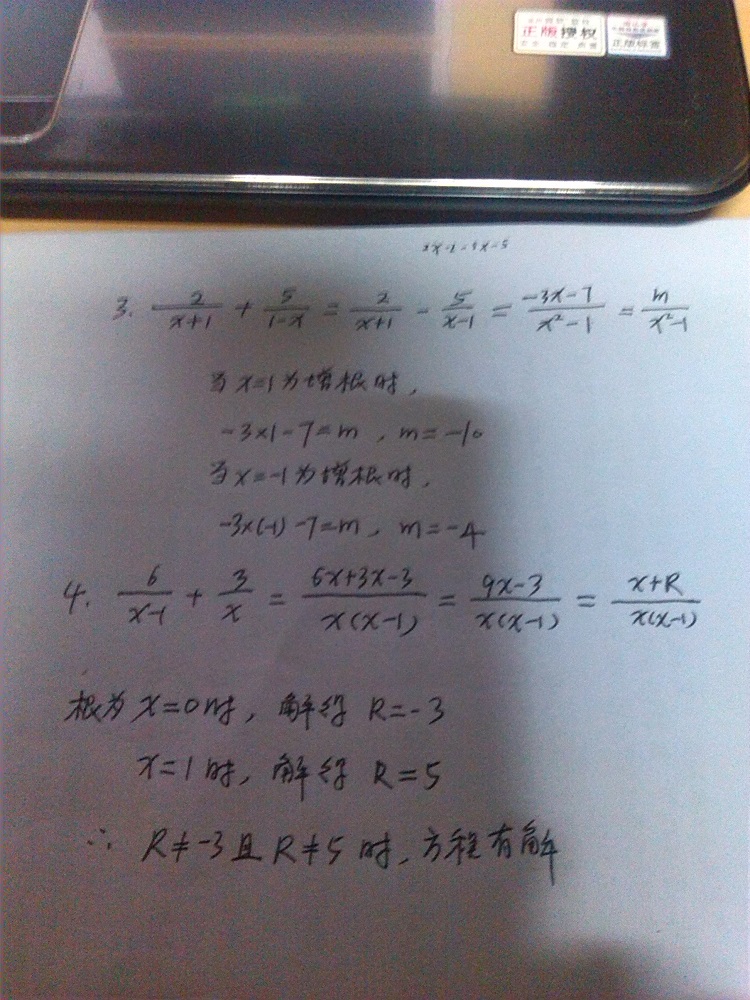 正版授权
正版标签
3. 2/(x+1) + 5/(1-x) = 2/(x+1) - 5/(x-1) = (-3x-7)/(x²-1) = m/(x²-1)
当x=1为增根时,
-3×1-7=m, m=-10
当x=-1为增根时,
-3×(-1)-7=m, m=-4
4. 6/(x-1) + 3/x = (6x+3x-3)/(x(x-1)) = (9x-3)/(x(x-1)) = (x+R)/(x(x-1))
根为x=0时, 解得 R=-3
x=1时, 解得 R=5
∴ R≠-3且R≠5时, 方程有解